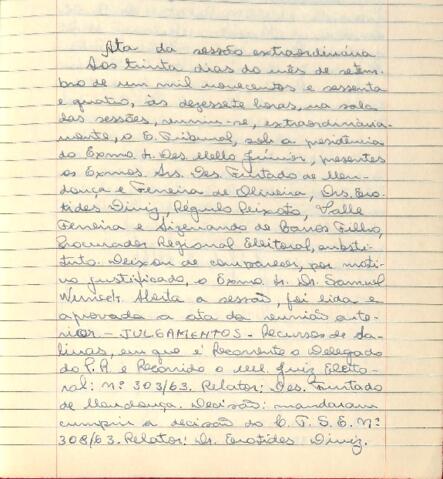 Ata da sessão extraordinária
Aos trinta dias do mês de setem-
bro de um mil novecentos e sessenta
e quatro, às dezessete horas, na sala
das sessões, reuniu-se, extraordinaria-
mente, o E. Tribunal, sob a presidência
do Exmo. Sr. Des. Mello Júnior, presentes
os Exmos. Srs. Des. Furtado de Men-
donça e Ferreira de Oliveira, Drs. Ero-
tides Diniz, Régulo Peixoto, Valle
Ferreira e Sizenando de Barros Filho,
Procurador Regional Eleitoral, substi-
tuto. Deixou de comparecer, por moti-
vo justificado, o Exmo. Sr. Dr. Samuel
Aberta a sessão, foi lida e
aprovada a ata da reunião ante-
rior - JULGAMENTOS - Recursos de Sa-
linas, em que é Recorrente o Delegado
do P.R. e Recorrido o MM. Juiz Eleito-
ral: nº 303/63. Relator: Des. Furtado
de Mendonça. Decisão: mandaram
cumprir a decisão do C. T. S. E. Nº
308/63. Relator: Dr. Erotides Diniz.